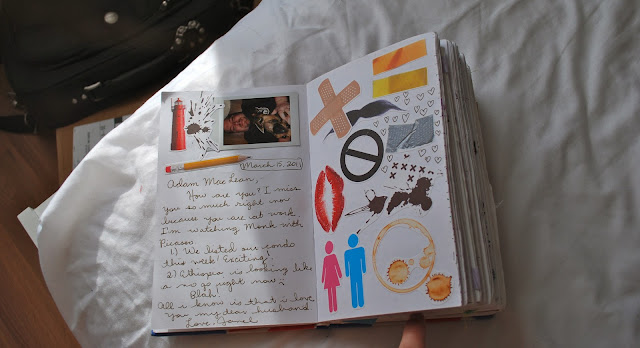 March 15, 201
Adam Mac Lean,
How are you? I miss
you so much right now
because you are at work
I'm watching Monk with
Picasso
1) We listed our condo
this week! Exciting!
2) Ethiopia is looking like
a no go right now :(
Blah!
All i know is that i love
you my dear husband
Love,